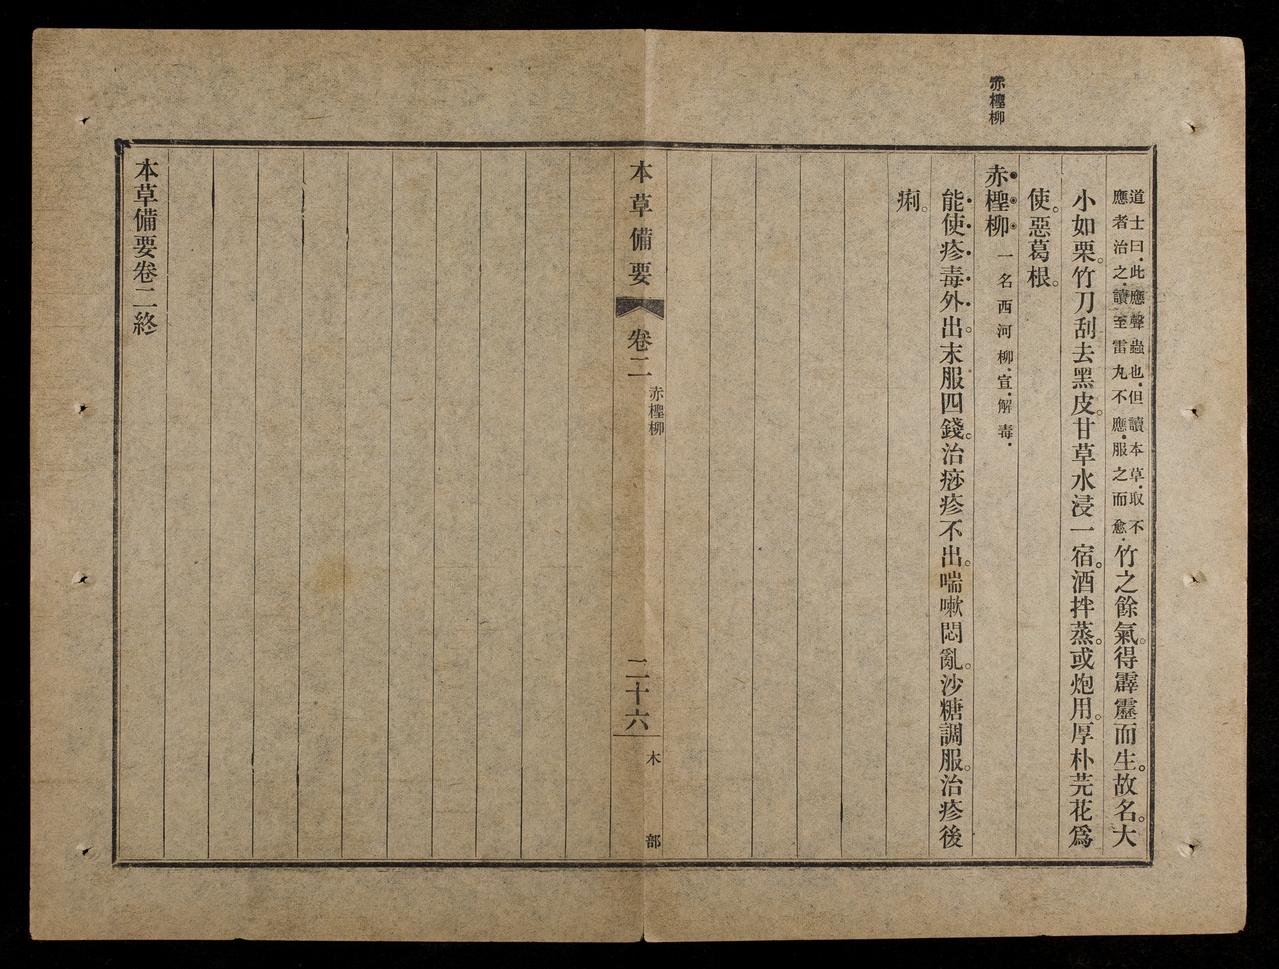 赤檉柳
道士曰.此應聲蟲也.但讀本草.取不
應者治之.讀至雷丸不應.服之而愈.
竹之餘氣。得霹靂而生。故名。大
小如栗。竹刀刮去黑皮。甘草水浸一宿。酒拌蒸。或炮用。厚朴芫花爲
使。惡葛根。
赤檉柳一名西河柳.宣.解毒.
能使疹毒外出。末服四錢。治痧疹不出。喘嗽悶亂。沙糖調服。治疹後
痢。
本草備要 卷二
赤檉柳
二十六
木部
本草備要卷二終